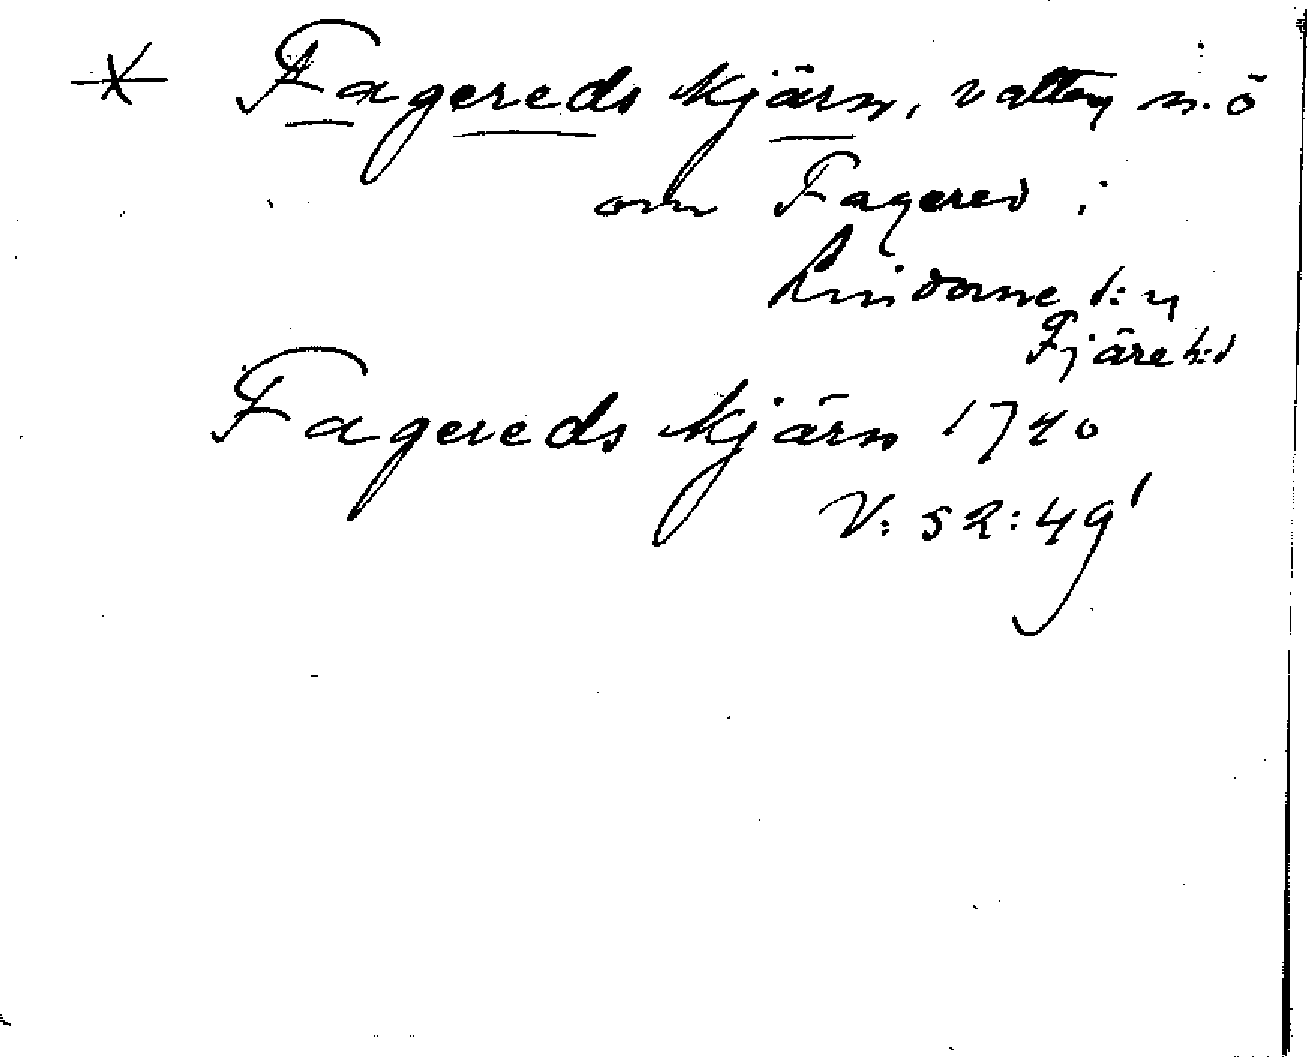 * Fagereds kjärn, vatten n.ö
om Fagered i
Lindome s:n
Fjäre h:d
Fagereds kjärn 1740
V: 52: 49'